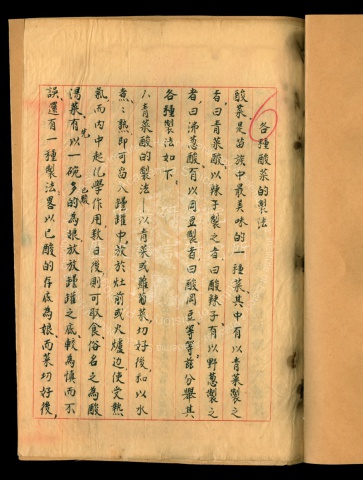 各種酸菜的製法
酸菜是苗族中最美味的一種菜、其中有以青菜製之
者曰青菜酸、以辣子製之者曰酸辣子有以野蔥製之
者曰沸蔥酸、有以四豆製者曰酸四豆、等等茲分舉其
各種製法如下、
1、青菜酸的製法——以青菜或蘿蔔菜切好後、和以水
煮、熟即可舀入罈罐中、放於灶前或火爐边使受熱
氣而內中起化學作用數日後則可取食、俗名之為酸
湯菜、有先以一碗多的已酸為娘放於罈罐之底較為慎而不
誤、還有一種製法畧以已酸的存底為娘而菜切好後、